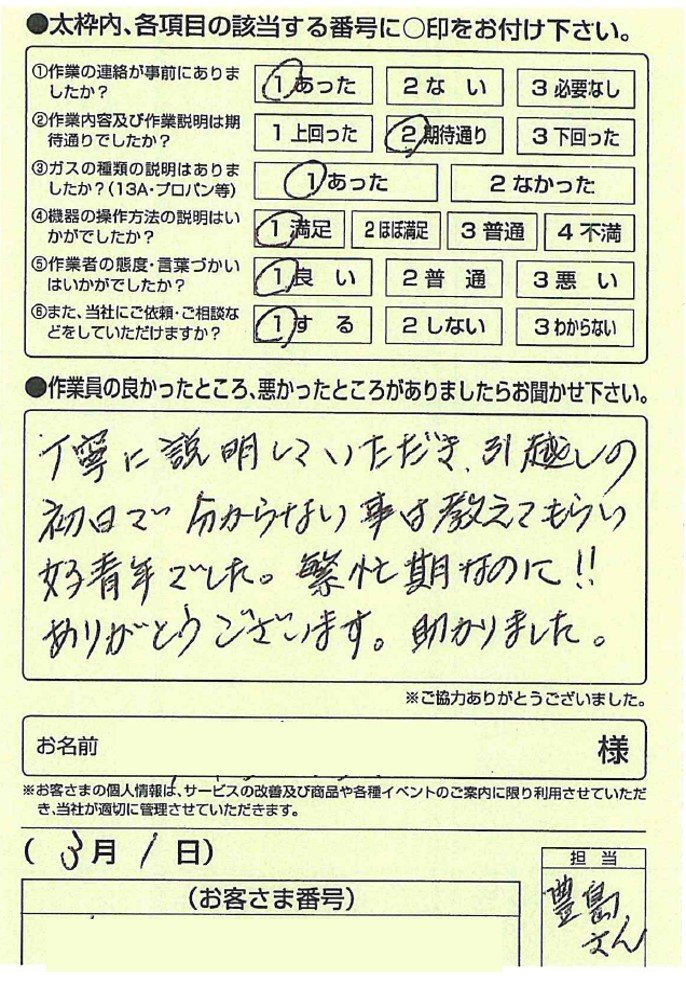 ●太枠内、各項目の該当する番号に○印をお付け下さい。
①作業の連絡が事前にありま
したか？
1 あった 2 な い 3 必要なし
②作業内容及び作業説明は期
待通りでしたか？
1 上回った 2 期待通り 3 下回った
③ガスの種類の説明はありま
したか？(13A・プロパン等)
1 あった 2 なかった
④機器の操作方法の説明はい
かがでしたか？
1 満足 2 ほぼ満足 3 普通 4 不満
⑤作業者の態度・言葉づかい
はいかがでしたか？
1 良 い 2 普 通 3 悪 い
⑥また、当社にご依頼・ご相談な
どをしていただけますか？
1 す る 2 しない 3 わからない
●作業員の良かったところ、悪かったところがありましたらお聞かせ下さい。
丁寧に説明していただき、引越しの
初日で分からない事は教えてもらい
好青年でした。繁忙期なのに!!
ありがとうございます。助かりました。
※ご協力ありがとうございました。
お名前 様
※お客さまの個人情報は、サービスの改善及び商品や各種イベントのご案内に限り利用させていただ
き、当社が適切に管理させていただきます。
(3月1日)
担 当
(お客さま番号)
豊島
さん